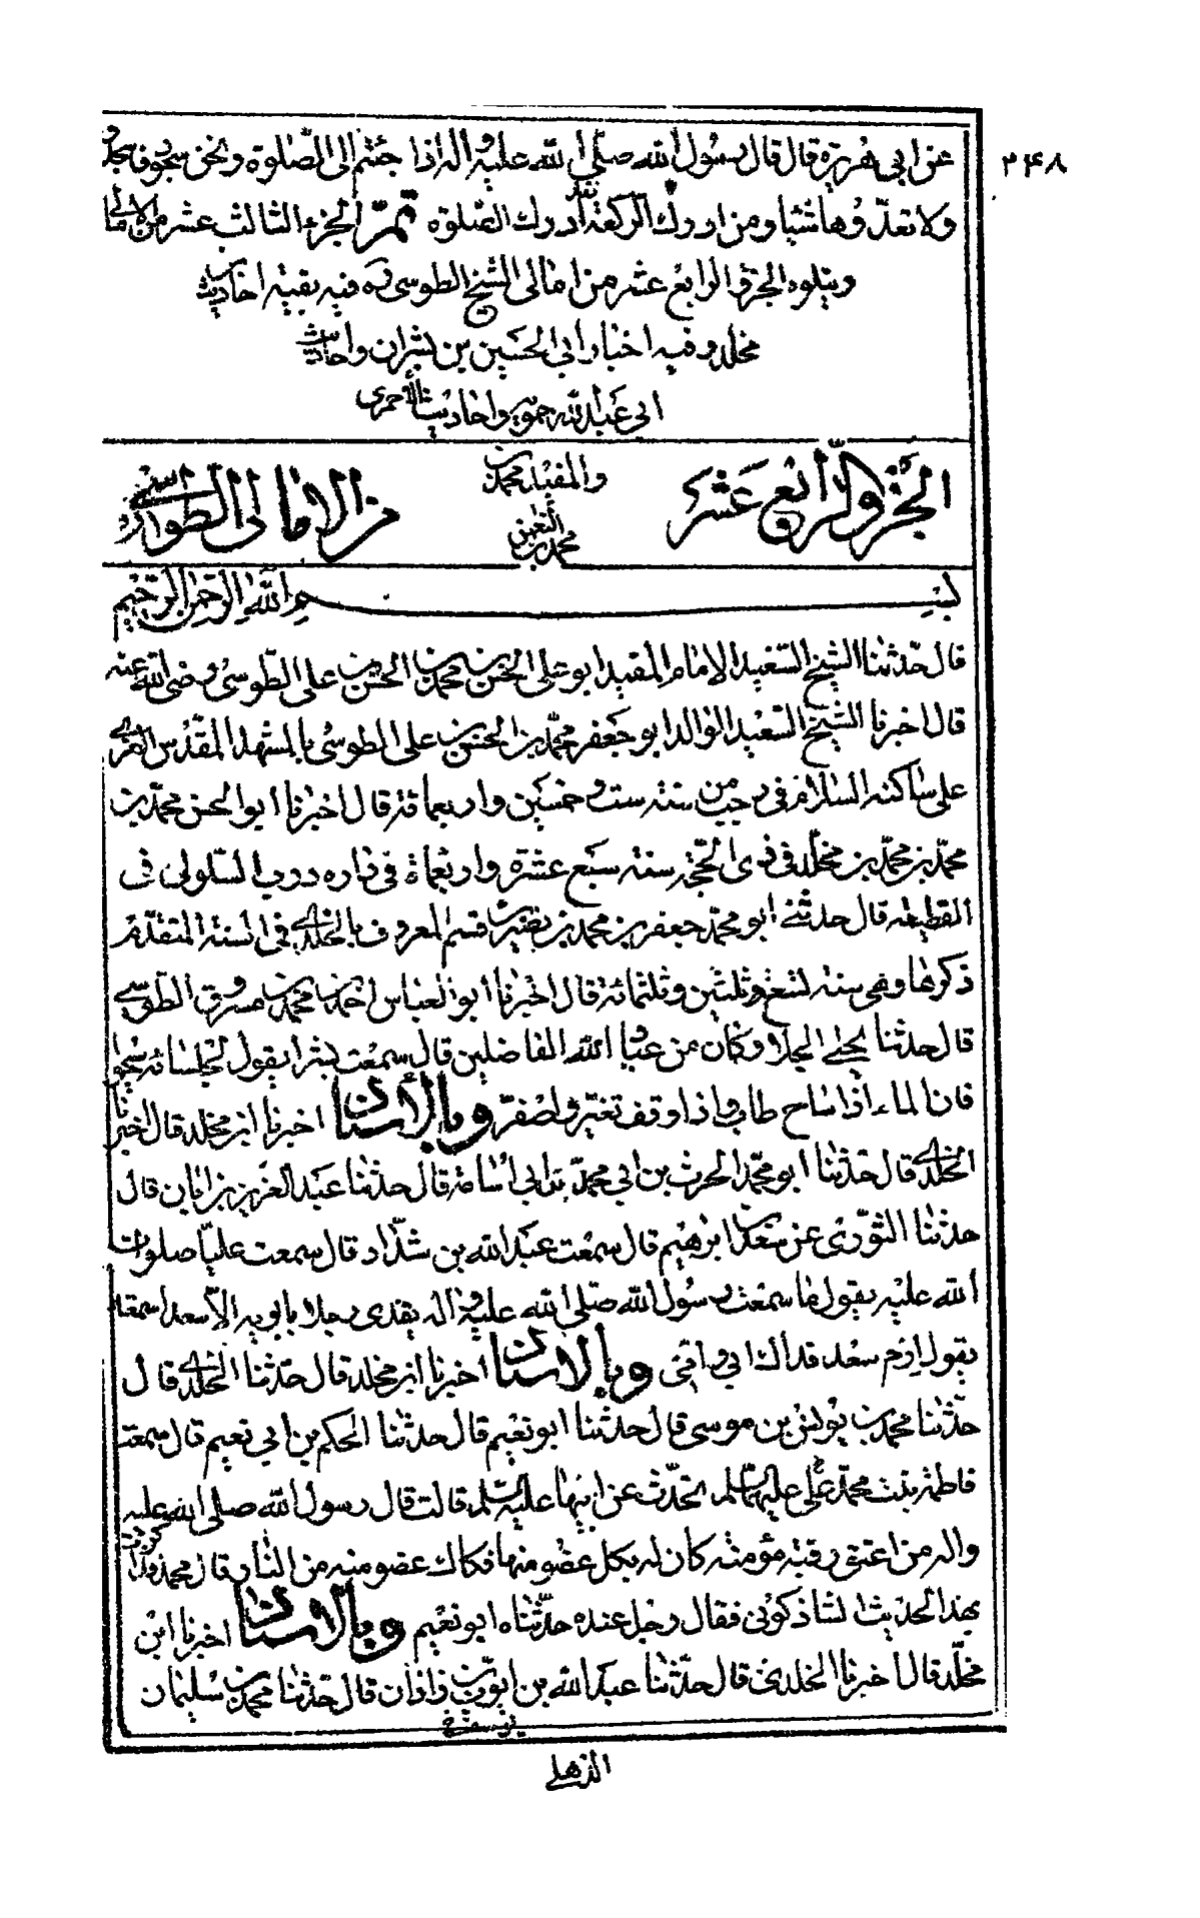 ۳۴۸
عن ابي هريرة قال قال رسول الله صلي الله عليه و اله اذا جئتم الى الصّلوة و نحن سجود فاسجدوا
ولا تعدّوها شيئا و من ادرك الركعة فقد ادرك الصّلوة تمّ الجزء الثالث عشر من الامالي
ويتلوه الجزء الرابع عشر من امالى الشيخ الطوسى ره فيه بقيّة احاديث
مخلد و فيه اخبار ابى الحسين بن بشران و احاديث
ابى عبد الله حمويه و احاديث
الجزء الرّابع عشر
من الامالى الطوسي
والمفيد محمد بن
محمد بن النعمن
بسم الله الرّحمن الرّحيم
قال حدّثنا الشيخ السّعيد الامام المفيد ابو على الحسن بن محمد بن الحسن بن على الطّوسى رضى الله عنه
قال اخبرنا الشيخ السّعيد الوالد ابو جعفر محمّد بن الحسن بن على الطوسى بالمشهد المقدّس الغروي
على ساكنه السّلام فى رجب من سنة ست و خمسين و اربعمائة قال اخبرنا ابو الحسن محمّد بن
محمّد بن محمّد بن مخلّد فى ذى الحجّة سنة سبع عشرة و اربعمائة فى داره درب السّلولى فى
القطيعة قال حدثني ابو محمّد جعفر بن محمد بن نصير بن قسم المعروف بالخلدي فى السنة المتقدّم
ذكرها و هى سنة تسع و ثلثين و ثلثمائة قال اخبرنا ابو العباس احمد بن محمد بن مسروق الطّوسي
قال حدثنا يحيي الجلا و كان من عباد الله الفاضلين قال سمعت بشرا يقول لجلسائه سيحوا
فان الماء اذا ساح طاب و اذا وقف تغيّر و اصفرّ وبالاسناد اخبرنا ابن مخلد قال اخبرنا
الخلدي قال حدّثنا ابو محمّد الحرث بن ابي محمّد بن ابى اسامة قال حدثنا عبد العزيز بن ابان قال
حدثنا الثّورى عن سعد بن ابرهيم قال سمعت عبد الله بن شدّاد قال سمعت عليّا صلوات
الله عليه يقول ما سمعت رسول الله صلّى الله عليه و اله يفدى رجلا بابويه الاّ سعدا سمعته
يقول ارم سعد فداك ابى و امّى وبالاسناد اخبرنا ابن مخلد قال حدّثنا الخلدي قال
حدّثنا محمد بن يونس بن موسى قال حدثنا ابو نعيم قال حدثنا الحكم بن ابي نعيم قال سمعت
فاطمة بنت محمّد علي عليهما السلم تحدّث عن ابيها عليه السلم قالت قال رسول الله صلى الله عليه
واله من اعتق رقبة مؤمنة كان له بكل عضو منها فكاك عضو منه من النار قال محمد
بهذا الحديث لشاذكونى فقال رجل عنده حدّثناه ابو نعيم وبالاسناد اخبرنا ابن
مخلّد قال اخبرنا الخلدى قال حدّثنا عبد الله بن ايّوب بن زاذان قال حدّثنا محمد بن سليمان
الذهلي